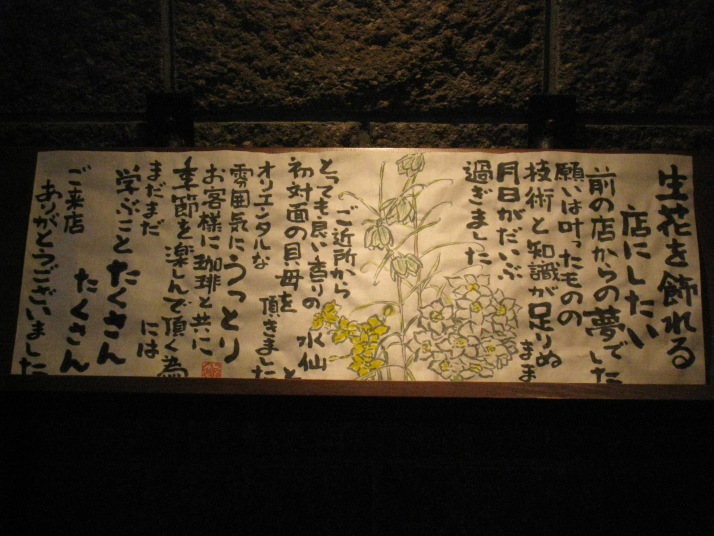 生花を飾れる
店にしたい
前の店からの夢でした
願いは叶ったものの
技術と知識が足りぬまま
月日がだいぶ
過ぎました
ご近所から
とっても良い香りの水仙と
初対面の貝母を
頂きました
オリエンタルな
雰囲気にうっとり
お客様に珈琲と共に
季節を楽しんで頂く為には
まだまだ
学ぶことたくさん
たくさん
ご来店
ありがとうございました